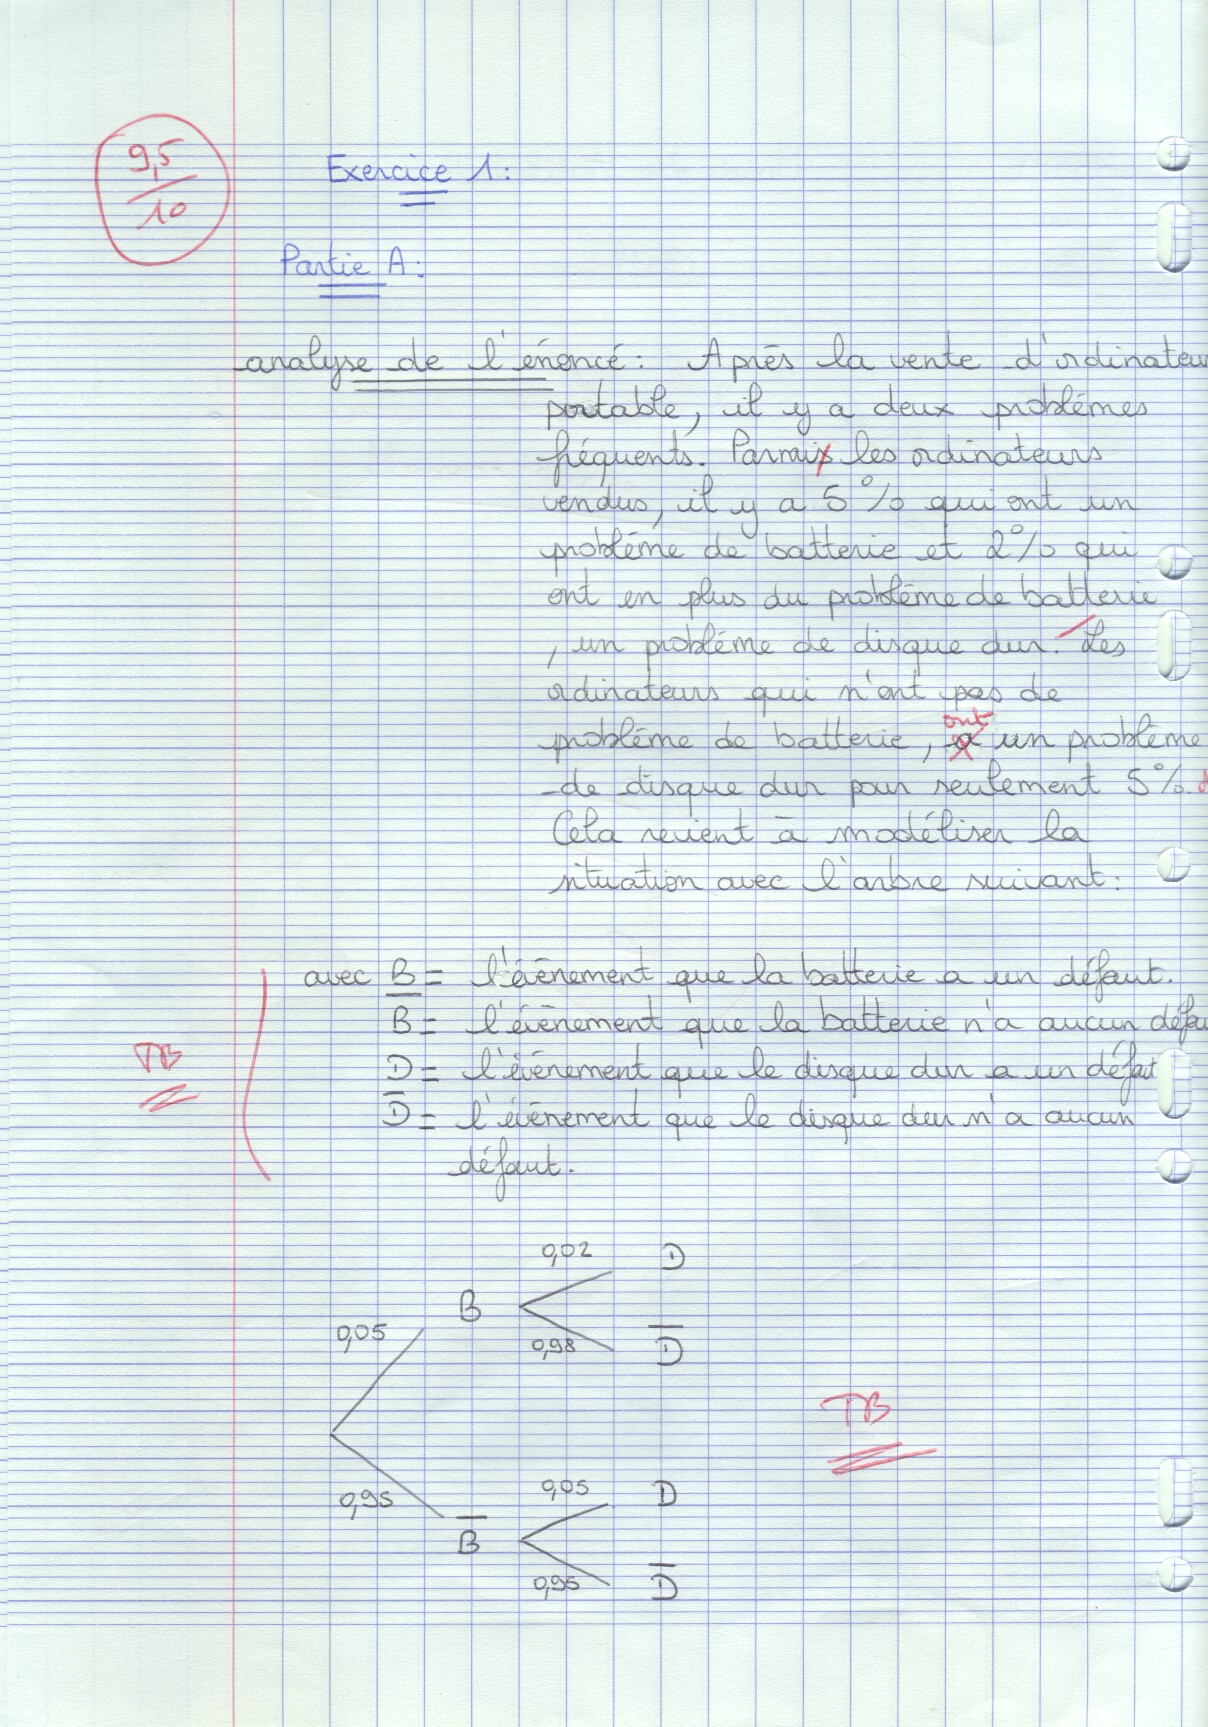 9,5
10
Exercice 1:
Partie A:
analyse de l'énoncé: Après la vente d'ordinateur
portable, il y a deux problèmes
fréquents. Parmix les ordinateurs
vendus, il y a 5% qui ont un
problème de batterie et 2% qui
ont en plus du problème de batterie
, un problème de disque dur. Les
ordinateurs qui n'ont pas de
ont
problème de batterie, a un problème
de disque dur pour seulement 5%.
Cela revient à modéliser la
situation avec l'arbre suivant:
avec B = l'évènement que la batterie a un défaut.
B̅ = l'évènement que la batterie n'a aucun défau
D = l'évènement que le disque dur a un défaut
TB
D̅ = l'évènement que le disque dur n'a aucun
défaut.
0,02 D
B
0,05
0,98 D̅
TB
0,05 D
0,95
B̅
0,95 D̅